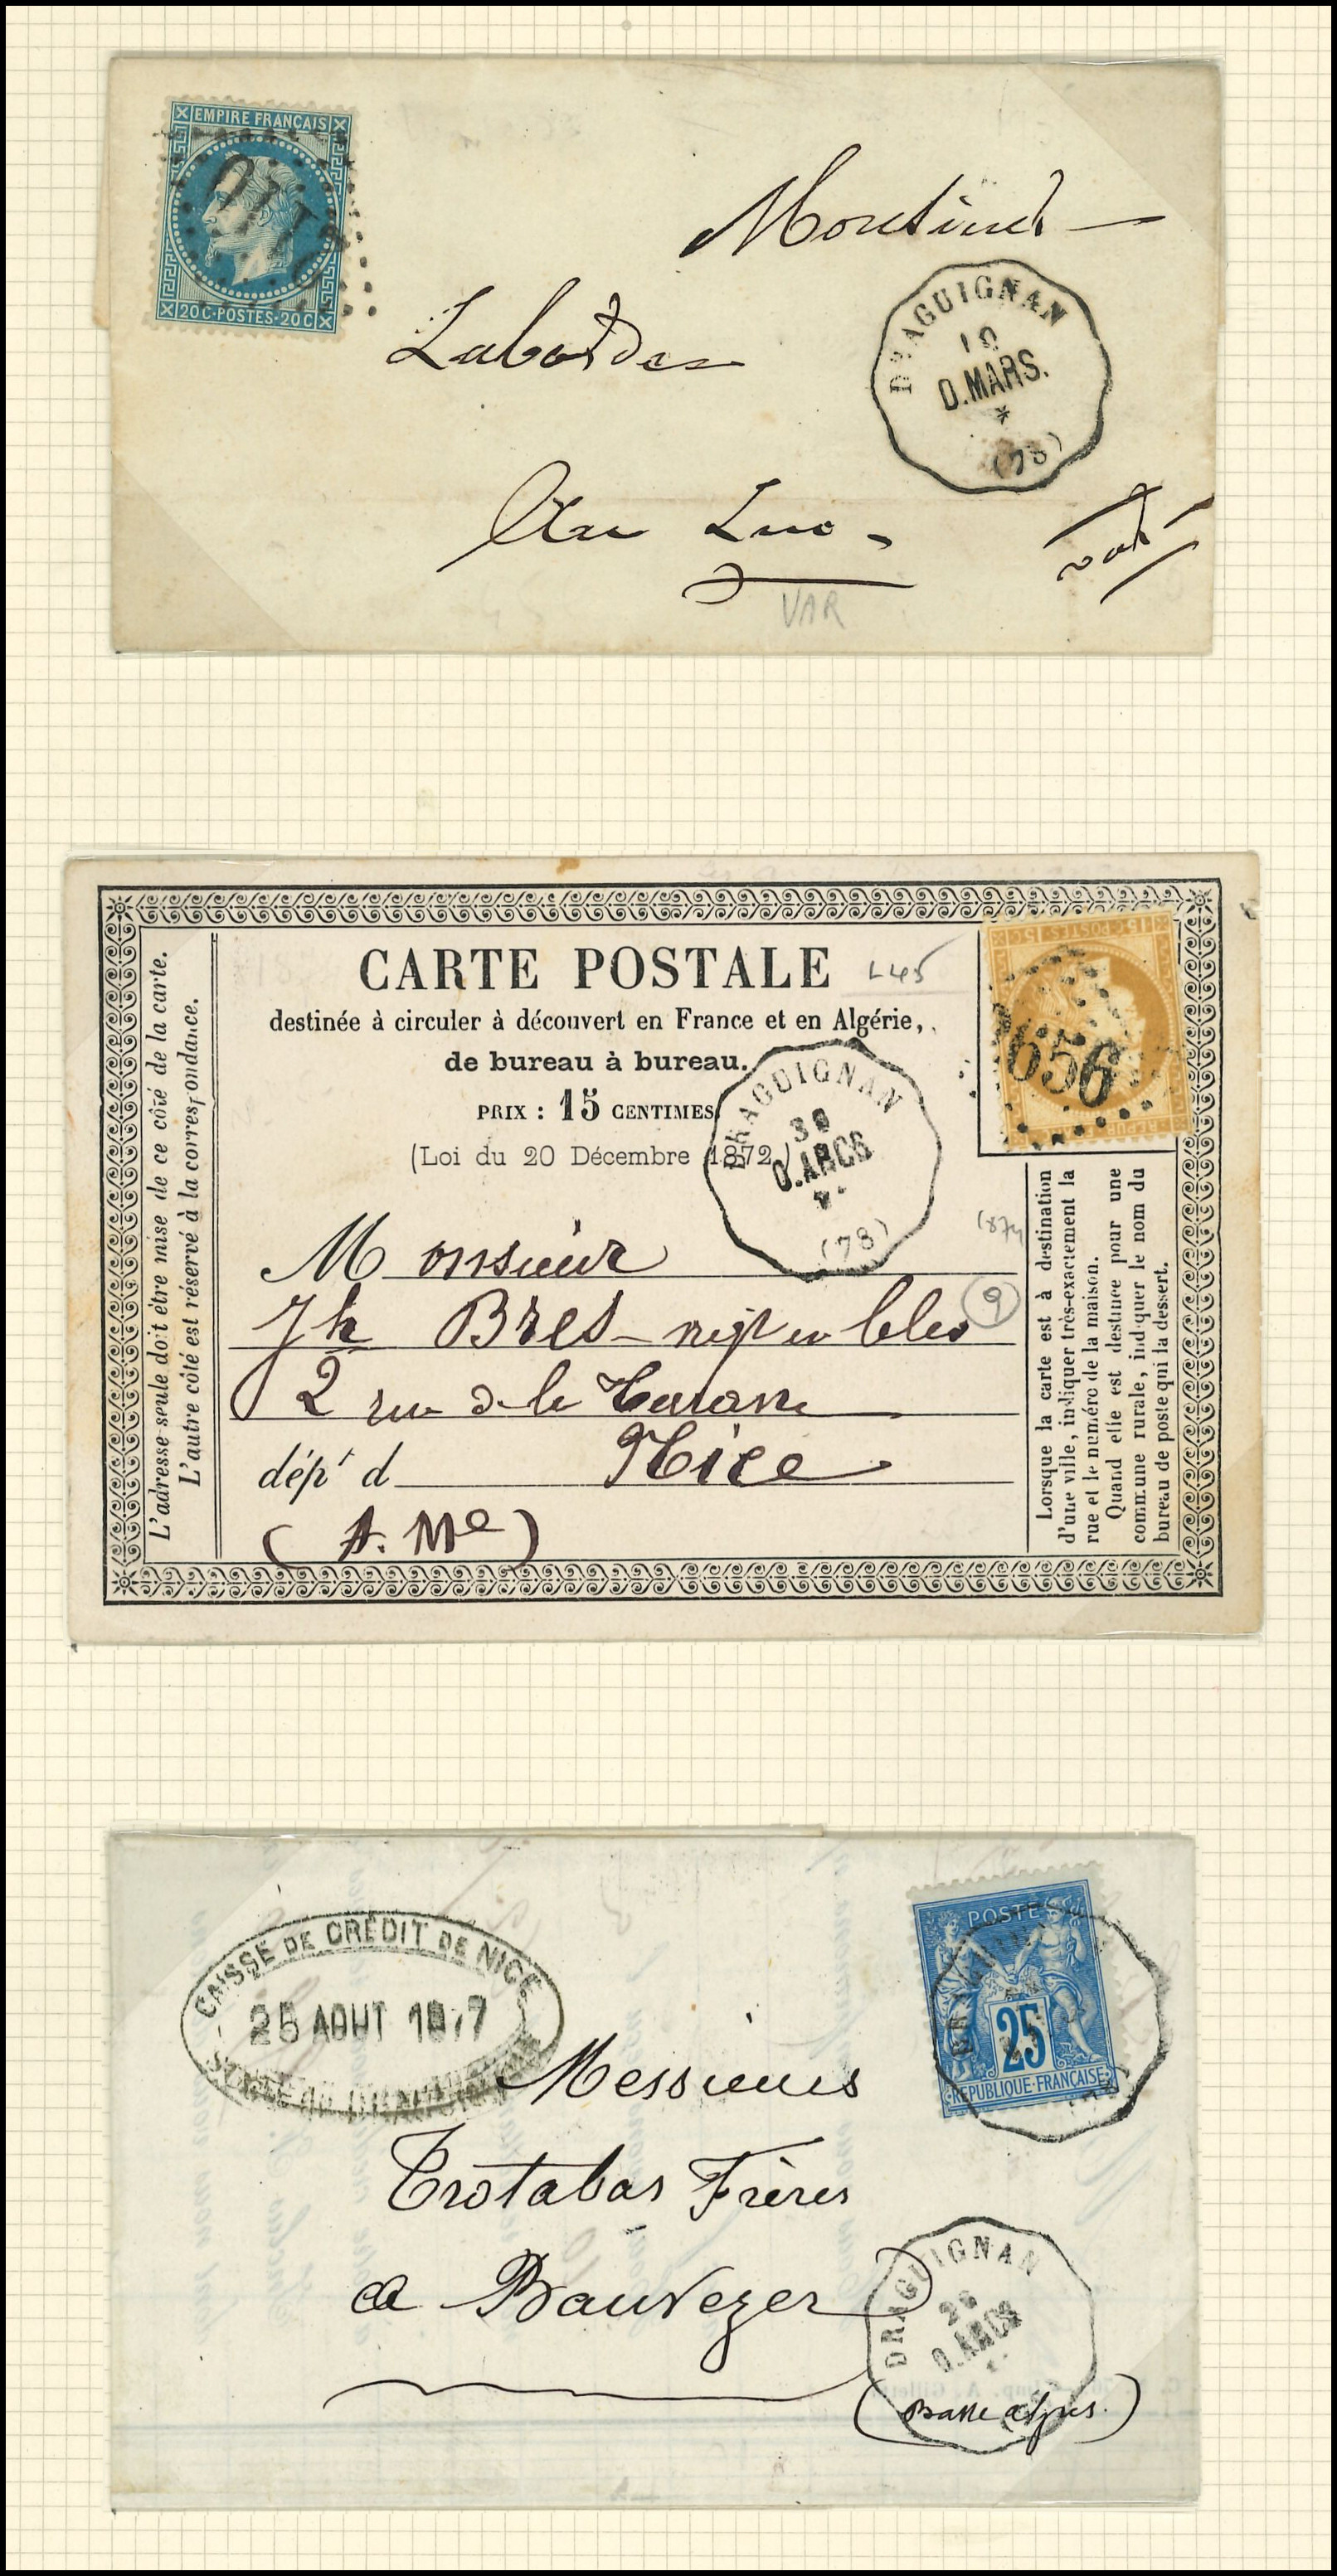 EMPIRE FRANÇAIS
20C·POSTES·20C
Labordes
DRAGUIGNAN
10
D.MARS.
*
(78)
Au Luc
Var
VAR
CARTE POSTALE
L 45
destinée à circuler à découvert en France et en Algérie,
de bureau à bureau.
PRIX : 15 CENTIMES
(Loi du 20 Décembre 1872.)
15C·POSTES·15C
656
DRAGUIGNAN
30
D.ARCS
(78)
Monsieur
Jh Bres negt en bles
9
2 rue de la
dépt d Nice
( A. Me )
L'adresse seule doit être mise de ce côté de la carte.
L'autre côté est réservé à la correspondance.
Lorsque la carte est à destination
d'une ville, indiquer très-exactement la
rue et le numéro de la maison.
Quand elle est destinée pour une
commune rurale, indiquer le nom du
bureau de poste qui la dessert.
CAISSE DE CRÉDIT DE NICE
25 AOUT 1877
POSTE
25
REPUBLIQUE·FRANÇAISE
Messieurs
Trotabas Frères
a Bauvezer
DRAGUIGNAN
26
D.ARCS
(Basse alpes.)